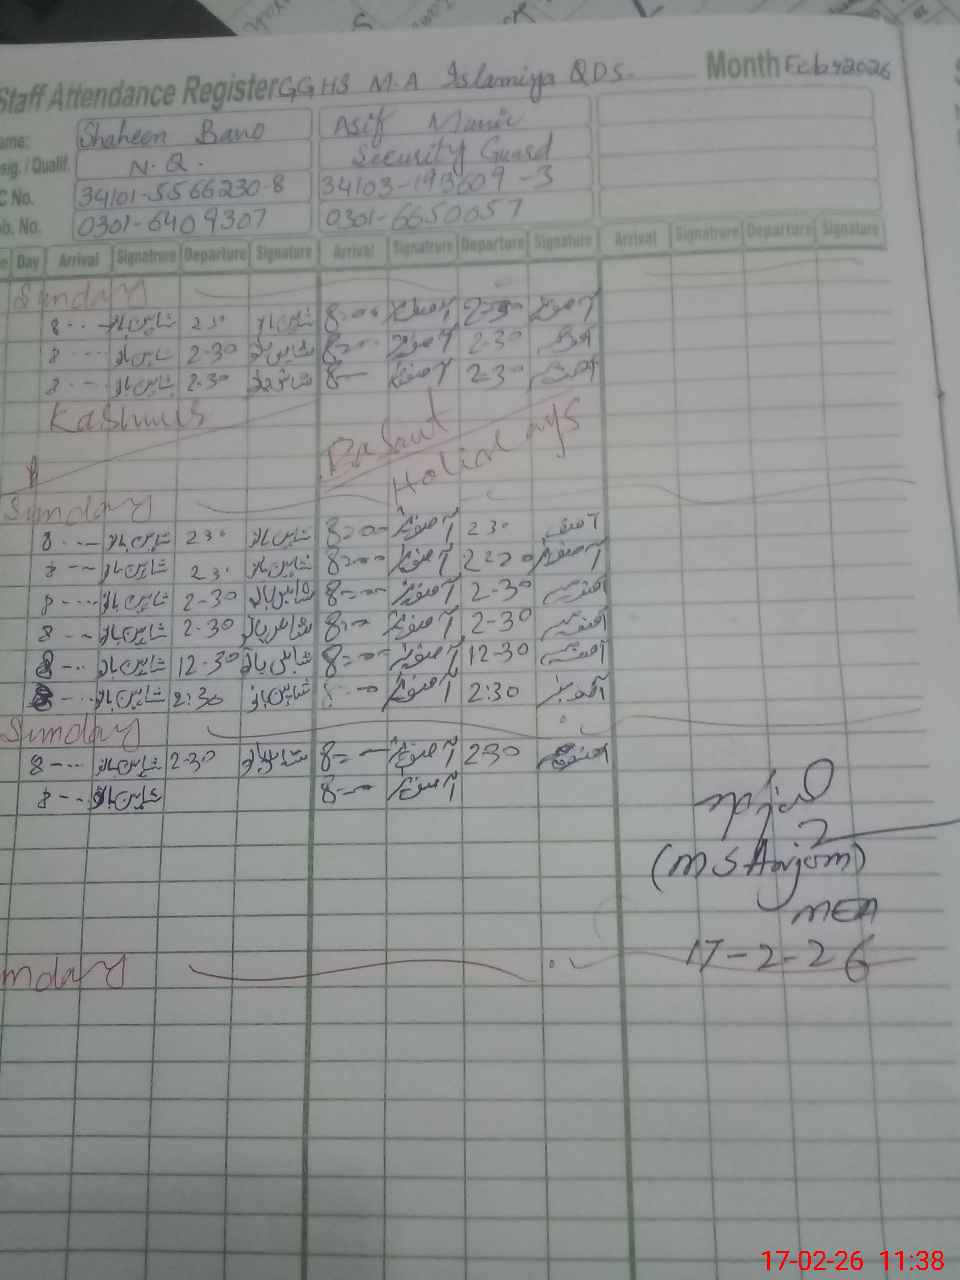 Staff Attendance Register GGHS M.A Islamiya QDS. Month Feb,2026
ame: Shaheen Bano Asif Munir
sig. / Qualif. N.Q. Security Guard
C No. 34101-5566230-8 34103-193609-3
ob. No. 0301-6409307 0301-6650057
Day Arrival Signatrure Departure Signature Arrival Signatrure Departure Signature Arrival Signatrure Departure Signature
Sunday
8-00 شاہین بانو 2 30 شاہین بانو 8-00 آصف 2-30 آصف
8-00 شاہین بانو 2-30 شاہین بانو 8-00 آصف 2-30 آصف
8-00 شاہین بانو 2-30 شاہین بانو 8-00 آصف 2-30 آصف
Kashmir
Basant
Holidays
Sunday
8-00 شاہین بانو 2 30 شاہین بانو 8-00 آصف 2 30 آصف
8-00 شاہین بانو 2 30 شاہین بانو 8-00 آصف آصف
8-00 شاہین بانو 2-30 شاہین بانو 8-00 آصف 2-30 آصف
8-00 شاہین بانو 2-30 شاہین بانو 8-00 آصف 2-30 آصف
8-00 شاہین بانو 12-30 شاہین بانو 8-00 آصف 12-30 آصف
8-00 شاہین بانو 2:30 شاہین بانو 8-00 آصف 2:30 آصف
Sunday
8-00 شاہین بانو 2-30 شاہین بانو 8-00 آصف 2-30 آصف
8-00 شاہین بانو 8-00 آصف
(M S Anjom)
MEA
17-2-26
nday
17-02-26 11:38